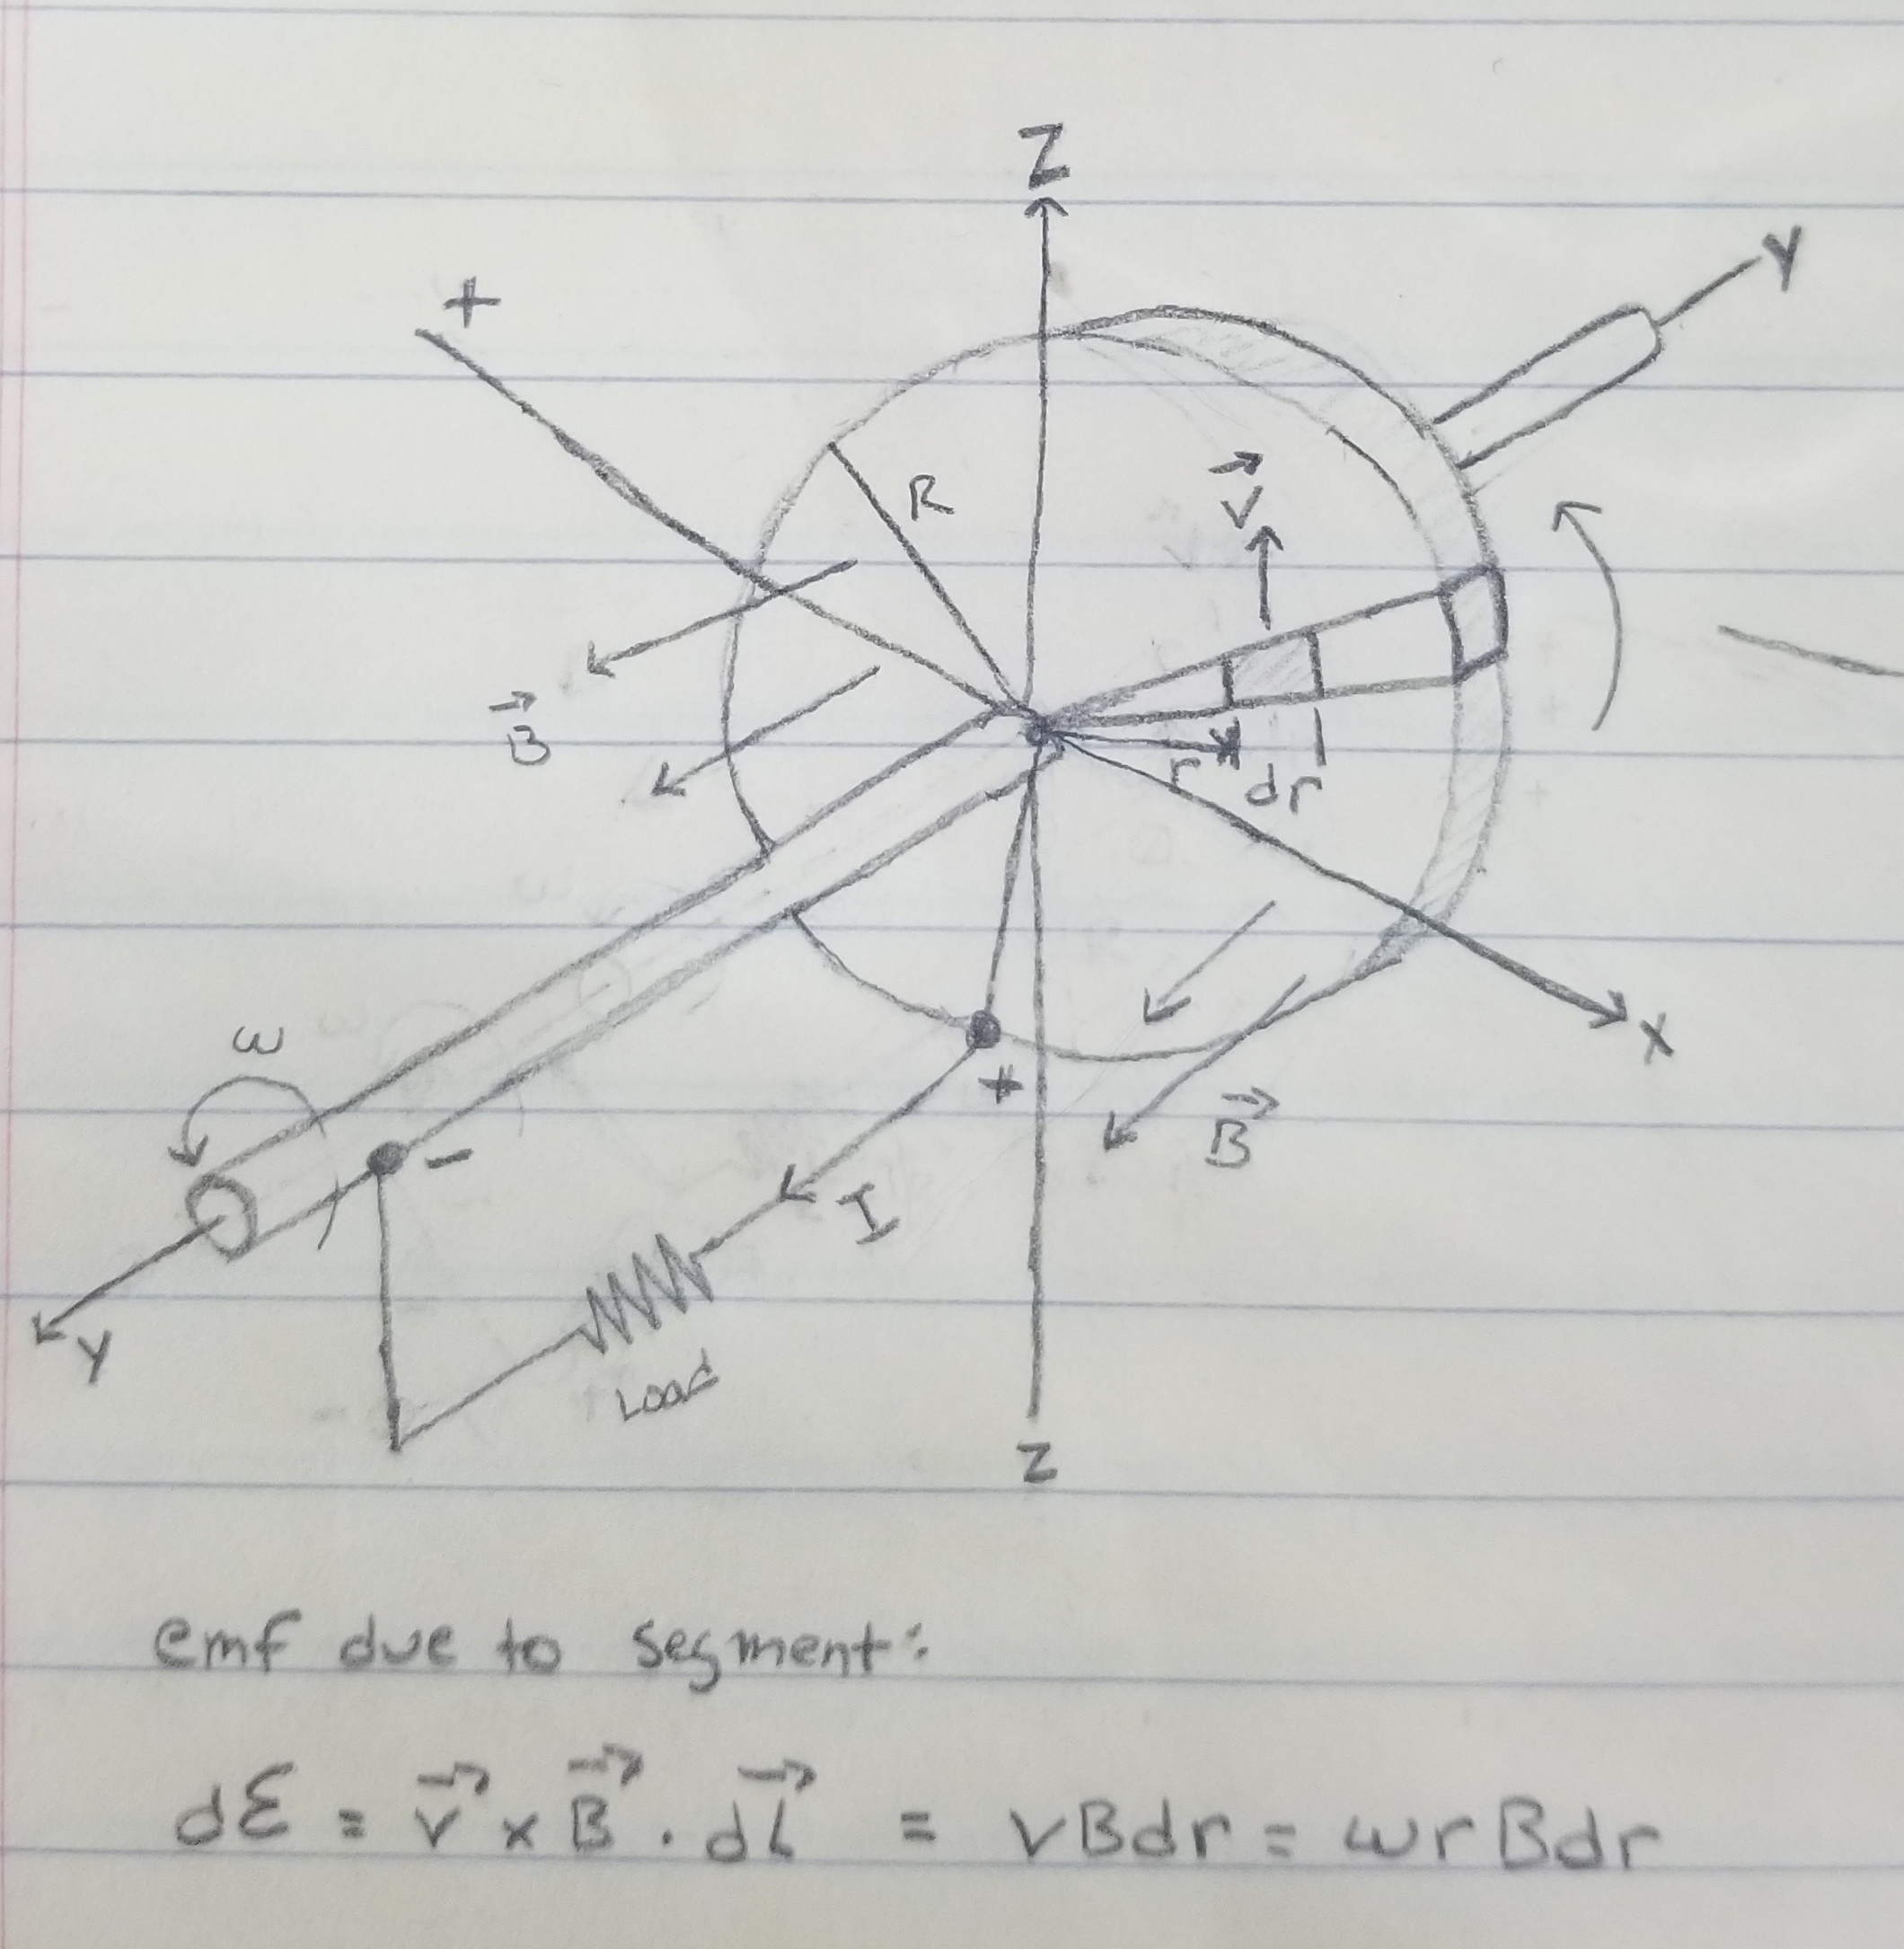 Z
Y
+
R
→
V
→
B
r
dr
X
ω
-
+
I
→
B
Load
Y
Z
emf due to segment:
dℰ = v⃗ x B⃗ . dL⃗ = vBdr = ωrBdr